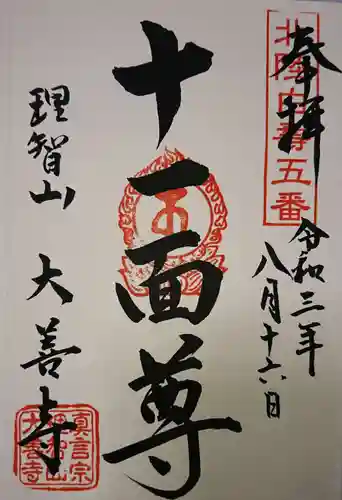 奉拝
北陸白寿五番
令和三年
八月十六日
十一面尊
理智山
大善寺
真言宗
理智山
大善寺